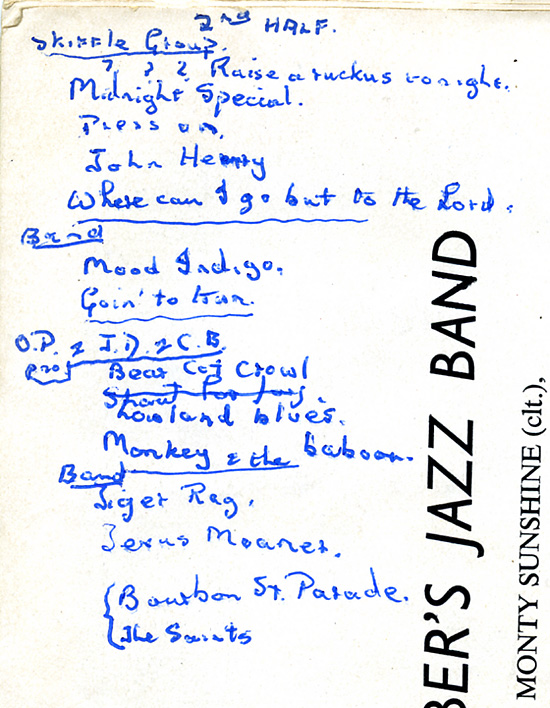 2nd HALF.
Skiffle Group.
? ? ? Raise a ruckus tonight.
Midnight Special.
Press on.
John Henry
Where can I go but to the Lord.
Band
Mood Indigo.
Goin' to town.
O.P. & J.D. & C.B.
Bear Cat Crowl
Shout for joy.
Lowland blues.
Monkey & the baboon.
Band
Tiger Rag.
Texas Moaner.
Bourbon St. Parade.
The Saints
BER'S JAZZ BAND
MONTY SUNSHINE (clt.),